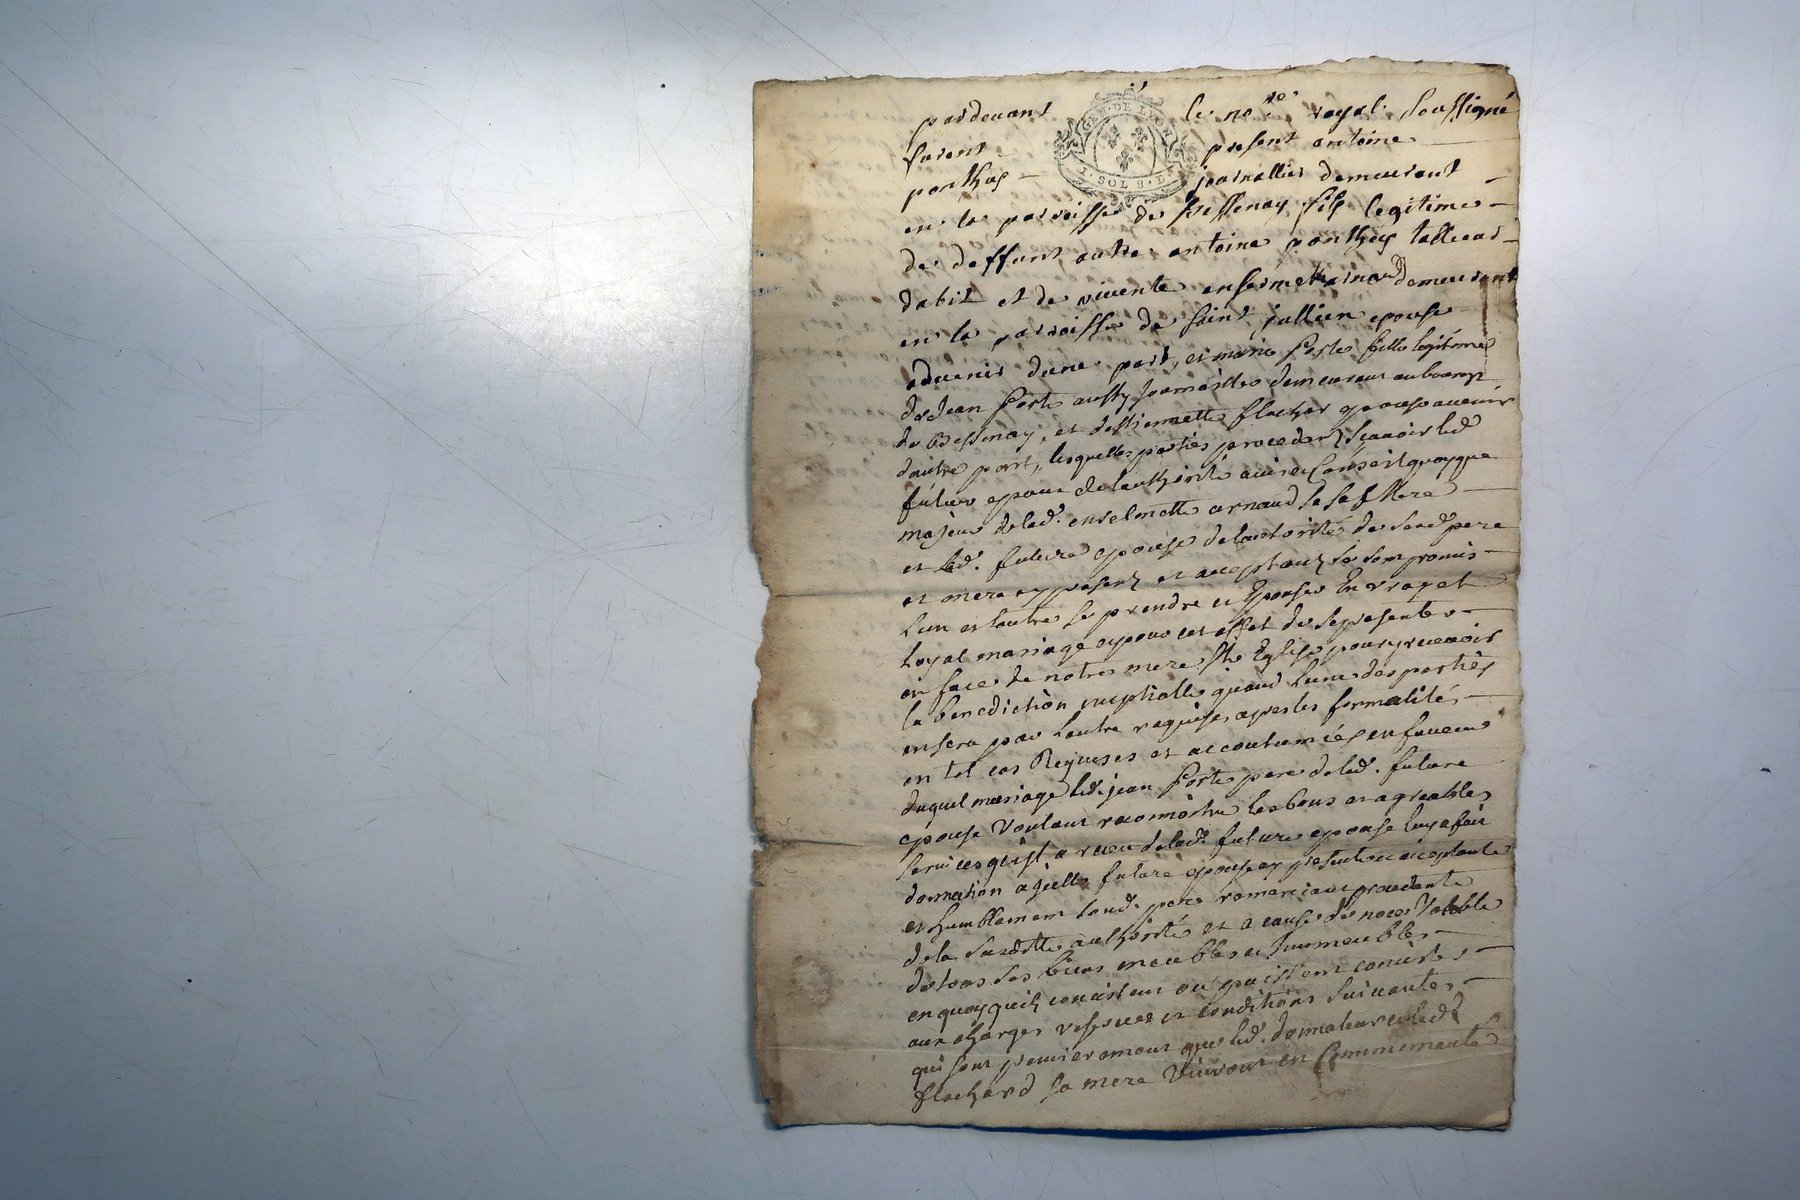 pardevant le no.re royal soussigné
furent present antoine
ponthus journallier demeurant
en la parroisse de Bessenay fils legitime
de deffunt autre antoine ponthus tallieur
dabit et de vivente enselmet arnaud demeurant
en la parroisse de saint jullien epouse
advenir dune part, et marie Forte fille legitime
de Jean Forte aussy Journaillier demeurant au bourg
de Bessenay, et destiennette flachat epouse avenir
dautre part, lesquelles parties procedant sçavoir led
futur epoux de lauthorité avis et Conseil quoyque
majeur de lad. enselmette arnaud sa Mere
et lad. future epouse de lautorité de sesd. pere
et mere cy presents et acceptants se sont promis
Lun et lautre se prendre et Epouser En vray et
Loyal mariage et pour cet effet de se presenter
en face de notre mere Ste Eglise pour y recevoir
la benediction nuptialle quand Lune des parties
en sera par Lautre requise, apres les formalités
en tel cas Requises et accoutumées en faveur
duquel mariage led. jean Forte pere de lad. future
epouse voulant reconnoitre les bons et agreables
services quil a reçu de lad. future epouse luy a fait
donnation a jcelle future epouse cy presente et acceptante
et humblement sond. pere remerciant procedante
de la susditte authorité et a cause de noces Valable
de tous ses biens meubles et Immeubles
en quoy quils concistent ou puissent concister
aux charges reserves et conditions suivantes
qui sont premierement que led. donnateur et lad.
flachard sa mere vivront en Communauté
GEN. DE LYON
1. SOL 8. D.